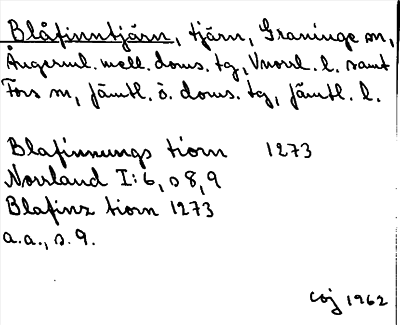 Blåfinntjärn, tjärn, Graninge sn,
Ångerml. mell. doms. tg, Vnorrl. l. samt
Fors sn, Jämtl. ö. doms. tg, Jämtl. l.
Blafinnungs tiorn 1273
Norrland I:6, s 8, 9
Blafinz tiorn 1273
a.a., s. 9.
CGJ 1962